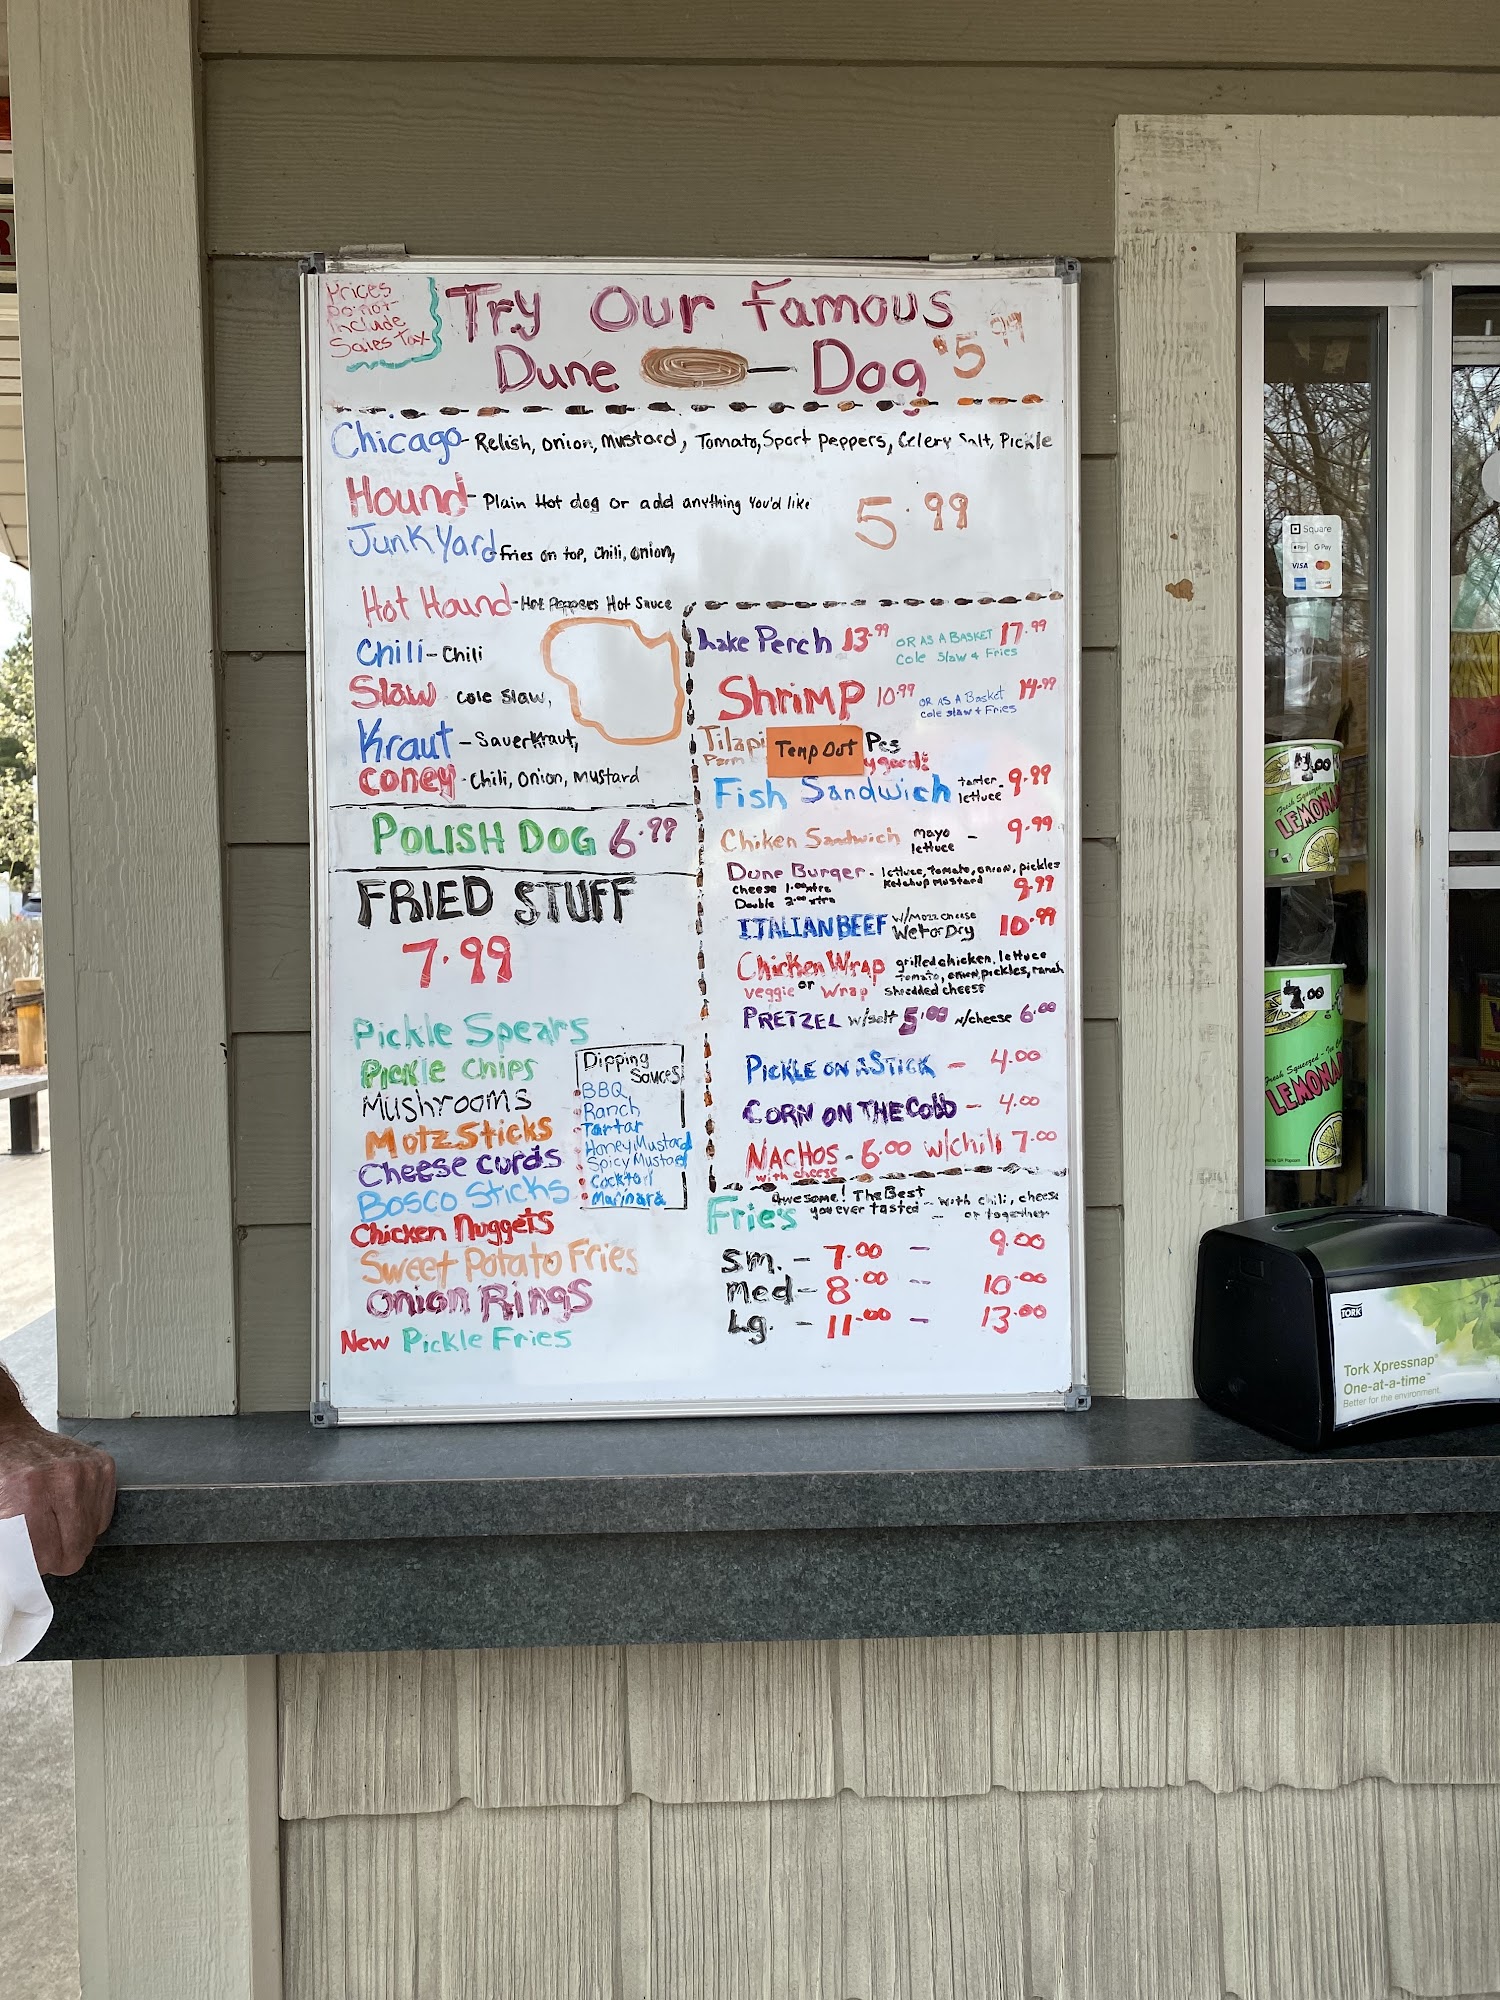 Prices
Do not
Include
Sales Tax
Try Our Famous
Dune Dog $5.99
Chicago- Relish, onion, Mustard, Tomato, Sport Peppers, Celery Salt, Pickle
Hound- Plain Hot dog or add anything You'd like
5.99
JunkYard- Fries on top, Chili, onion,
Hot Hound- Hot Peppers Hot Sauce
Chili- Chili
Slaw cole slaw,
Kraut- Sauerkraut,
Coney- Chili, Onion, Mustard
POLISH DOG 6.99
FRIED STUFF
7.99
Pickle Spears
Pickle Chips
Mushrooms
Motz Sticks
Cheese curds
Bosco Sticks
Chicken Nuggets
Sweet Potato Fries
Onion Rings
New Pickle Fries
Dipping
Sauces
BBQ
Ranch
Tartar
Honey Mustard
Spicy Mustard
Cocktail
Marinara
Lake Perch 13.99 OR AS A BASKET 17.99
Cole Slaw & Fries
Shrimp 10.99 OR AS A Basket 14.99
Cole slaw & Fries
Tilapi Temp Out Pcs
Parm
Fish Sandwich tarter- 9.99
lettuce
Chiken Sandwich mayo - 9.99
lettuce
Dune Burger- lettuce, tomato, onion, pickles
Ketchup Mustard 9.99
Cheese 1.00 xtra
Double 2.00 xtra
ITALIAN BEEF w/Mozz cheese 10.99
Wet or Dry
Chicken Wrap grilled chicken, lettuce
or tomato, onion, pickles, ranch
veggie Wrap shredded cheese
PRETZEL w/salt 5.00 w/cheese 6.00
PICKLE ON A STICK - 4.00
CORN ON THE Cobb - 4.00
NACHOS - 6.00 w/chili 7.00
with cheese
Fries Awesome! The Best
you ever tasted - with chili, cheese
or together
Sm. - 7.00 - 9.00
Med - 8.00 - 10.00
Lg. - 11.00 - 13.00
Square
Pay G Pay
VISA
Fresh Squeezed
LEMONA
7.00
LEMONA
TORK
Tork Xpressnap®
One-at-a-time™
Better for the environment.